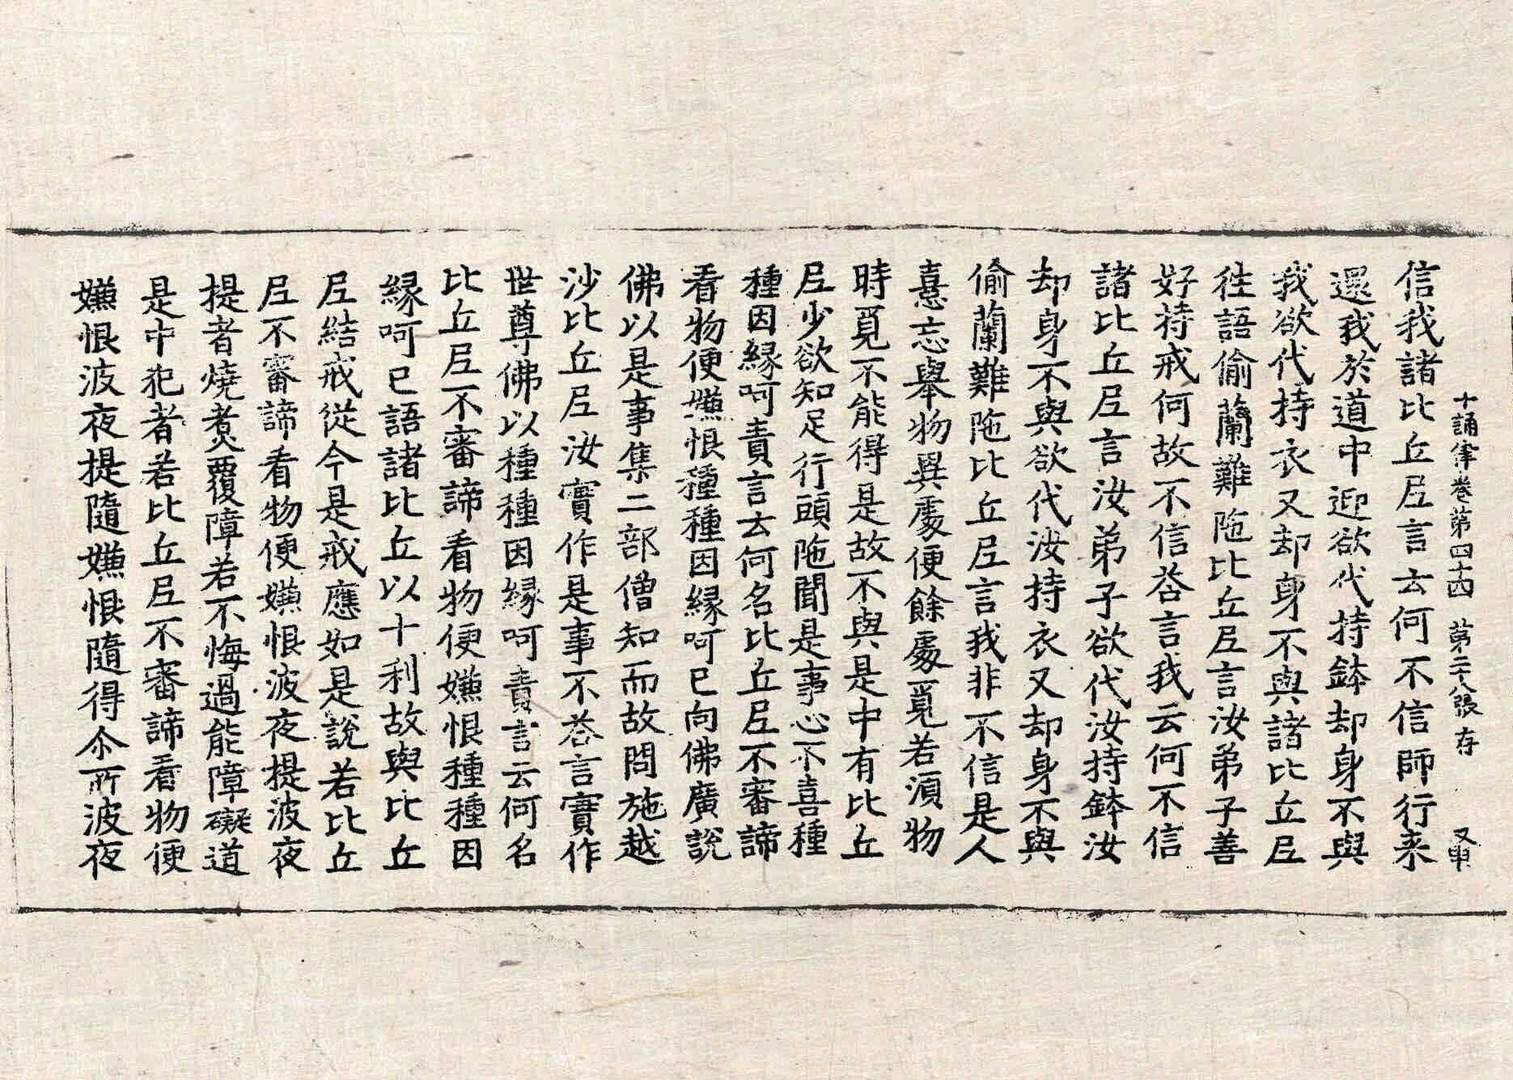 十誦律卷第四十四 第二十八張 存 又申
信我諸比丘尼言云何不信師行来
還我於道中迎欲代持鉢却身不與
我欲代持衣又却身不與諸比丘尼
往語偷蘭難陁比丘尼言汝弟子善
好持戒何故不信荅言我云何不信
諸比丘尼言汝弟子欲代汝持鉢汝
却身不與欲代汝持衣又却身不與
偷蘭難陁比丘尼言我非不信是人
憙忘舉物異處便餘處覓若湏物
時覓不能得是故不與是中有比丘
尼少欲知足行頭陁聞是事心不喜種
種因縁呵責言云何名比丘尼不審諦
看物便嫌恨種種因縁呵已向佛廣說
佛以是事集二部僧知而故問施越
沙比丘尼汝實作是事不荅言實作
世尊佛以種種因縁呵責言云何名
比丘尼不審諦看物便嫌恨種種因
縁呵已語諸比丘以十利故與比丘
尼結戒從今是戒應如是說若比丘
尼不審諦看物便嫌恨波夜提波夜
提者燒煮覆障若不悔過能障礙道
是中犯者若比丘尼不審諦看物便
嫌恨波夜提隨嫌恨隨得尒所波夜